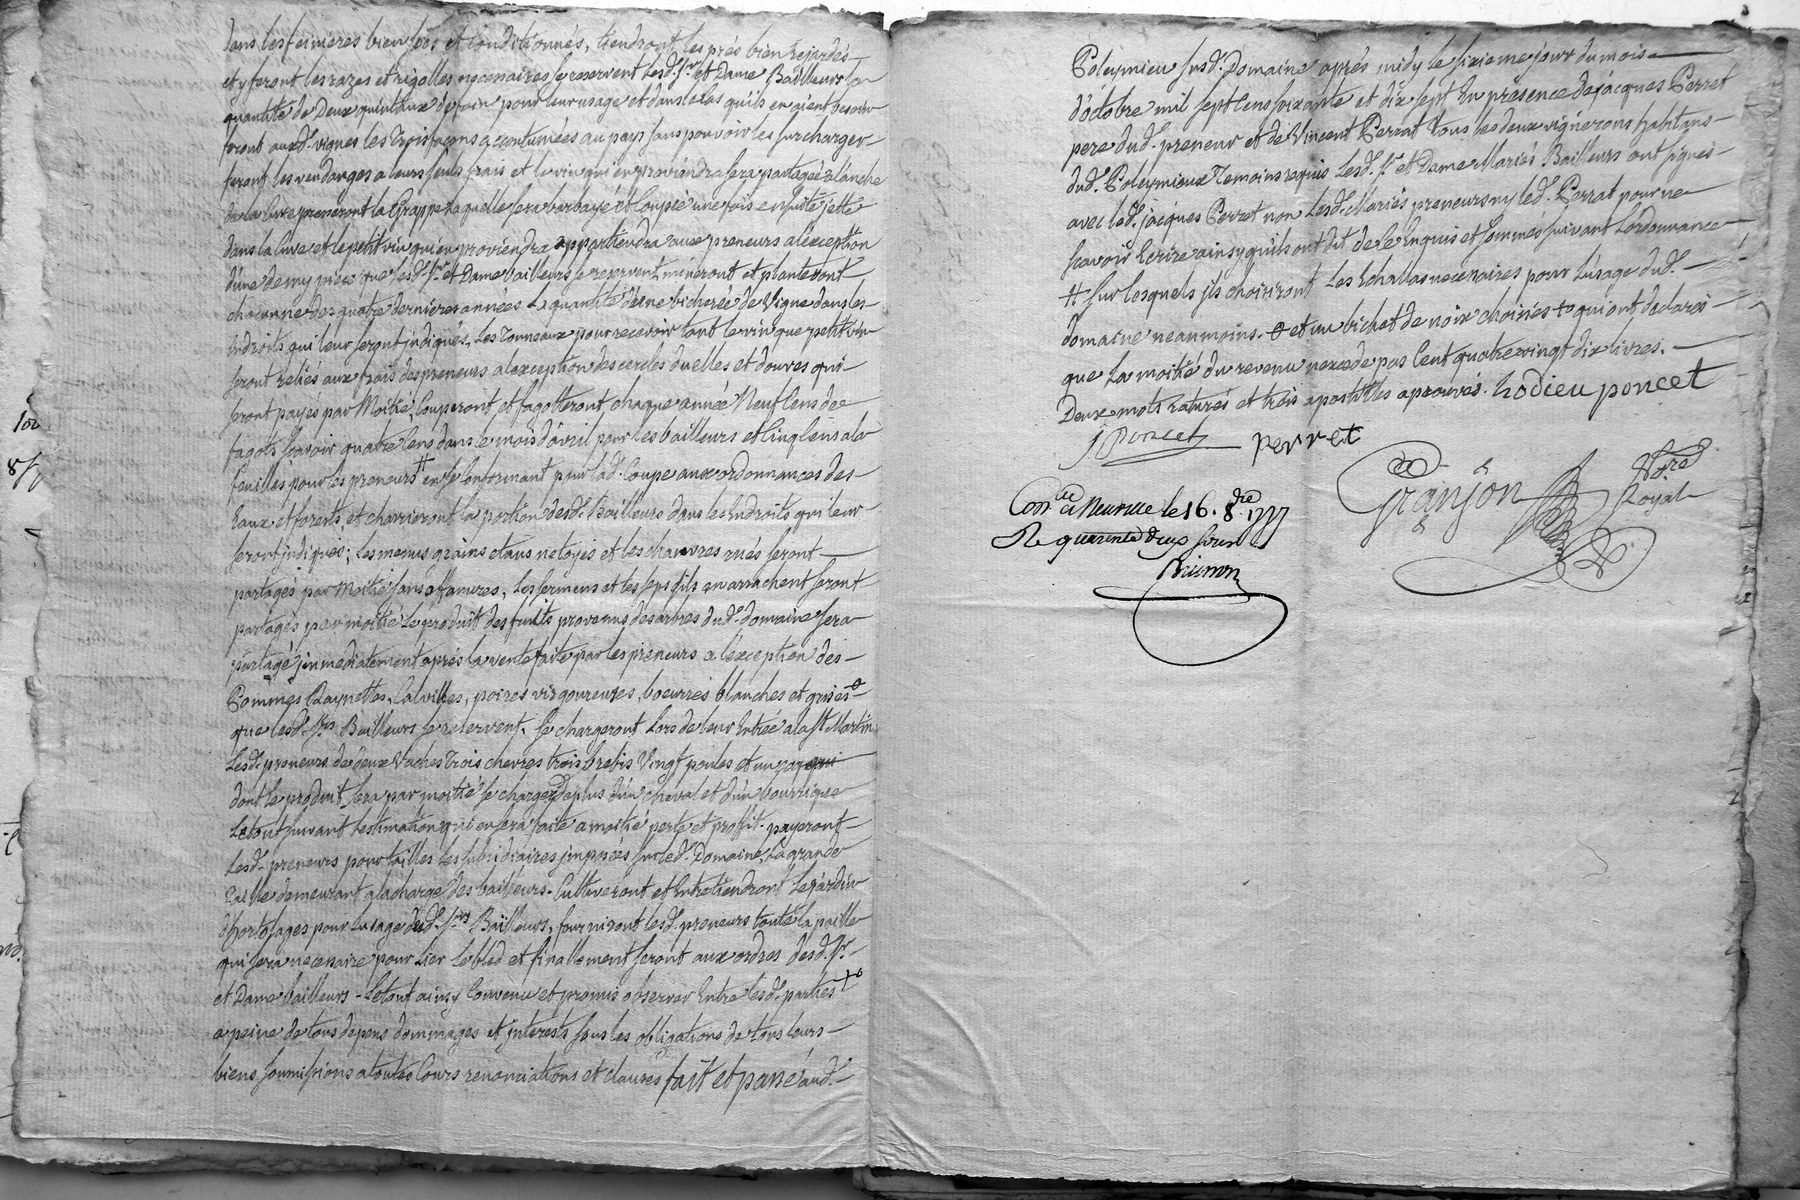 dans les terrieres bien et conditionnés, tiendront les prés bien rejardés
et y feront les razes et rigolles necessaires se reservent lesd. Sr. et Dame Bailleurs la
quantité de Deux quintaux de foin pour leur usage et dans le cas qu'ils en aient besoin
feront auxd. vignes les trois façons accoutumées au pays sans pouvoir les surcharger
feront les vendanges a leurs seuls frais et le vin qui en proviendra sera partagé a lanche
de la Cuve preneront la Grappe laquelle sera barbayé et Coupée une fois ensuite jetté
dans la Cuve et le petit vin qui en proviendra appartiendra aux preneurs a l'exception
d'une demy piéce que lesd. Sr. et Dame bailleurs se reservent, mineront et planteront
chacunne des quatre dernieres années La quantité d'une bicherée de Vigne dans les
Endroits qui leur seront indiqués, Les Tonneaux pour recevoir tant le vin que petit vin
seront reliés aux frais des preneurs a l'exception des cercles duelles et douves qui
seront payés par Moitié, Couperont et fagotteront chaque année Neuf Cens de
fagots scavoir quatre Cens dans le mois d'avril pour les bailleurs et Cinq Cens a la
feuilles pour les preneurs ⵜ en se Conformant pour lad. Coupe aux ordonnances des
Eaux et forests, et charrieront la portion desd. Bailleurs dans les Endroits qui leur
seront indiqués; Les menus grains etans netoyés et les chanvres més seront
partagés par Moitié sans affanures, Les sermens et les seps s'ils en arrachent seront
partagés par moitié Le produit des fruits provenus des arbres dud. domaine sera
partagé immediatement aprés la vente faite par les preneurs a l'exception des
Pommes Raynettes, Calvilles, poires virgoureuses, boeurrés blanches et grises
que lesd. Srs. Bailleurs se reservent. Se chargeront Lors de leur Entrée a la St. Martin
Lesd. preneurs de deux Vaches Trois chevres trois brebis Vingt poules et un
dont le produit sera par moitié se chargent deplus d'un cheval et d'un bourrique
Le tout suivant l'estimation qui en sera faite a moitié perte et proffit. payeront
Lesd. preneurs pour tailles les subsidiaires imposées sur led. Domaine, La grande
Taille demeurant a la charge des bailleurs. Cultiveront et Entretiendront Le jardin
d'hortolages pour L'usage dud. Srs Bailleurs, fourniront lesd. preneurs toute la paille
qui sera necessaire pour Lier le bled et finallement seront aux ordres desd. Sr.
et Dame bailleurs - Le tout ainsy Convenu et promis observer Entre lesd. parties
a peine de tous depens dommages et interests sous les obligations de tous leurs
biens soumissions a toutes Cours renonciations et clauses fait et passé aud.
Poleymieu susd. Domaine aprés midy le sixieme jour du mois
d'octobre mil sept Cens soixante et dix sept En presence de jacques Perret
pere dud. preneur et de Vincent Perrat Tous les deux vignerons habitans
dud. Poleymieux Temoins requis Lesd. Sr. et Dame Mariés Bailleurs ont signés
avec led. jacques Perret non Lesd. Mariés preneurs ny led. Perrat pour ne
scavoir Ecrire ainsy qu'ils ont dit de ce Enquis et sommés suivant L'ordonnance
ⵜ sur lesquels ils choisiront Les Echallas necessaires pour L'usage dud.
domaine neanmoins. et un bichet de noix choisies qui ont declarés
que La moitié du revenu n'excede pas Cent quatre vingt dix livres.
Deux mots raturés et trois apostilles aprouvés. hodieu poncet
J Poncet perret
Granjon Notre Royal
Con.lé a Neuville le 16. 8.bre 1777
Re quarente deux sous